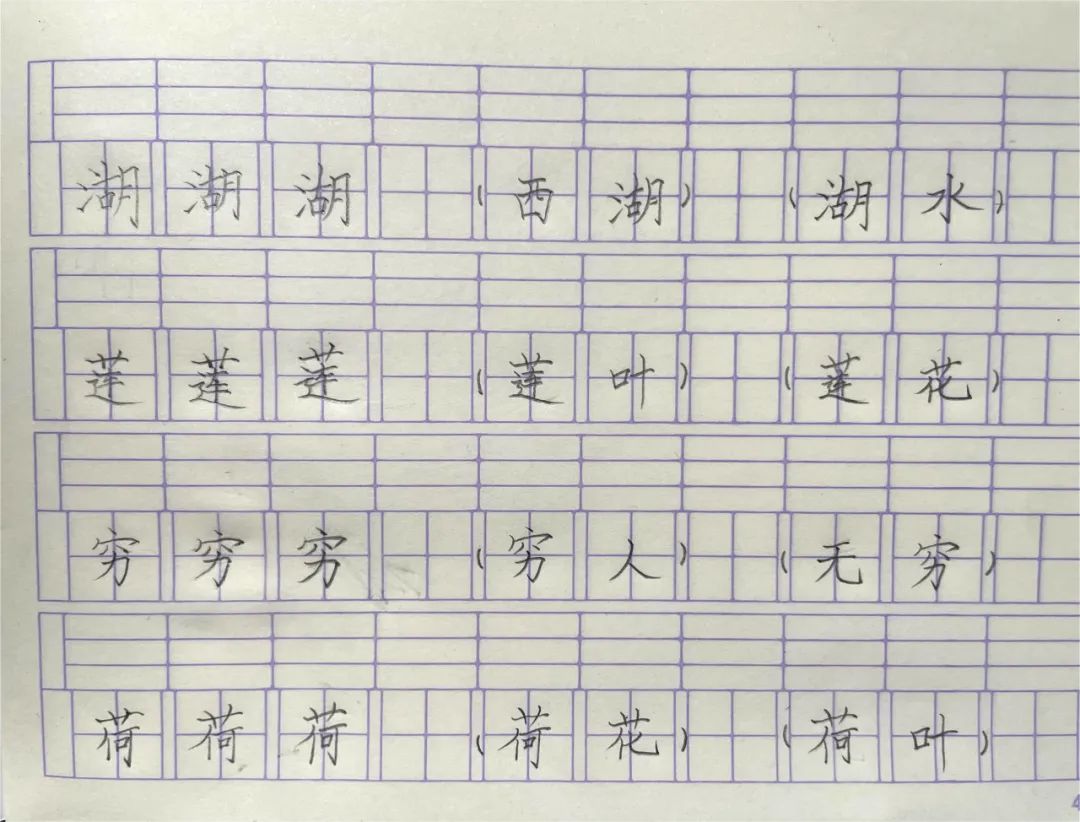 湖湖湖（西湖）（湖水）
莲莲莲（莲叶）（莲花）
穷穷穷（穷人）（无穷）
荷荷荷（荷花）（荷叶）
4